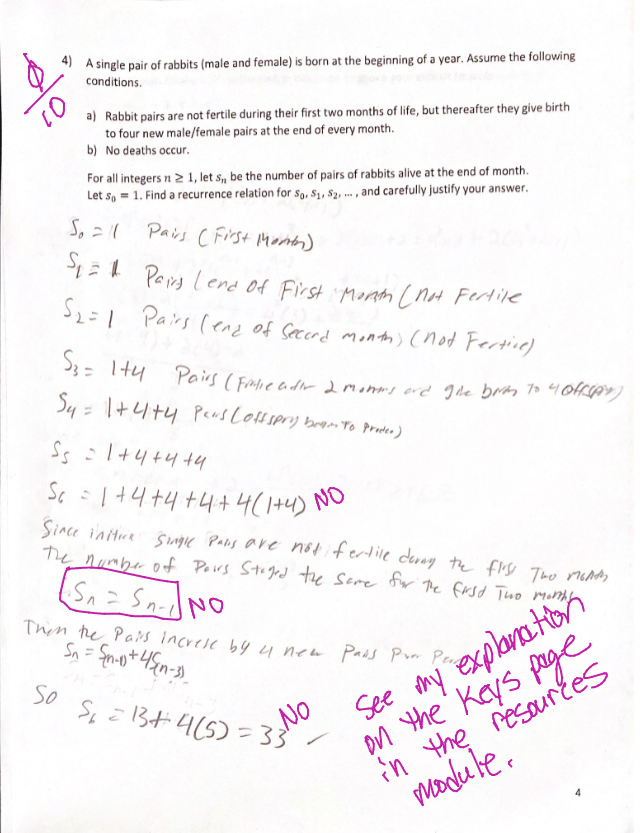 0/10
4) A single pair of rabbits (male and female) is born at the beginning of a year. Assume the following
conditions.
a) Rabbit pairs are not fertile during their first two months of life, but thereafter they give birth
to four new male/female pairs at the end of every month.
b) No deaths occur.
For all integers n ≥ 1, let sₙ be the number of pairs of rabbits alive at the end of month.
Let s₀ = 1. Find a recurrence relation for s₀, s₁, s₂, ... , and carefully justify your answer.
S₀ = 1 Pairs (First Month)
S₁ = 1 Pairs (end of First Month (not Fertile
S₂ = 1 Pairs (end of Second month) (not Fertile)
S₃ = 1+4 Pairs ( 2 months and give to 4 offspring)
S₄ = 1+4+4 Pairs (offspring to )
S₅ = 1+4+4+4
S₆ = 1+4+4+4+4(1+4) NO
Since Single Pairs are not fertile during the first Two months
The number of Pairs Stayed the Same for the first Two months
Sₙ = Sₙ₋₁ NO
Then the Pairs increse by 4 new Pairs Per
Sₙ = S₍ₙ₋₁₎ + 4S₍ₙ₋₃₎
So S₆ = 13 + 4(5) = 33 NO
See my explanation
on the Keys page
in the resources
module.
4